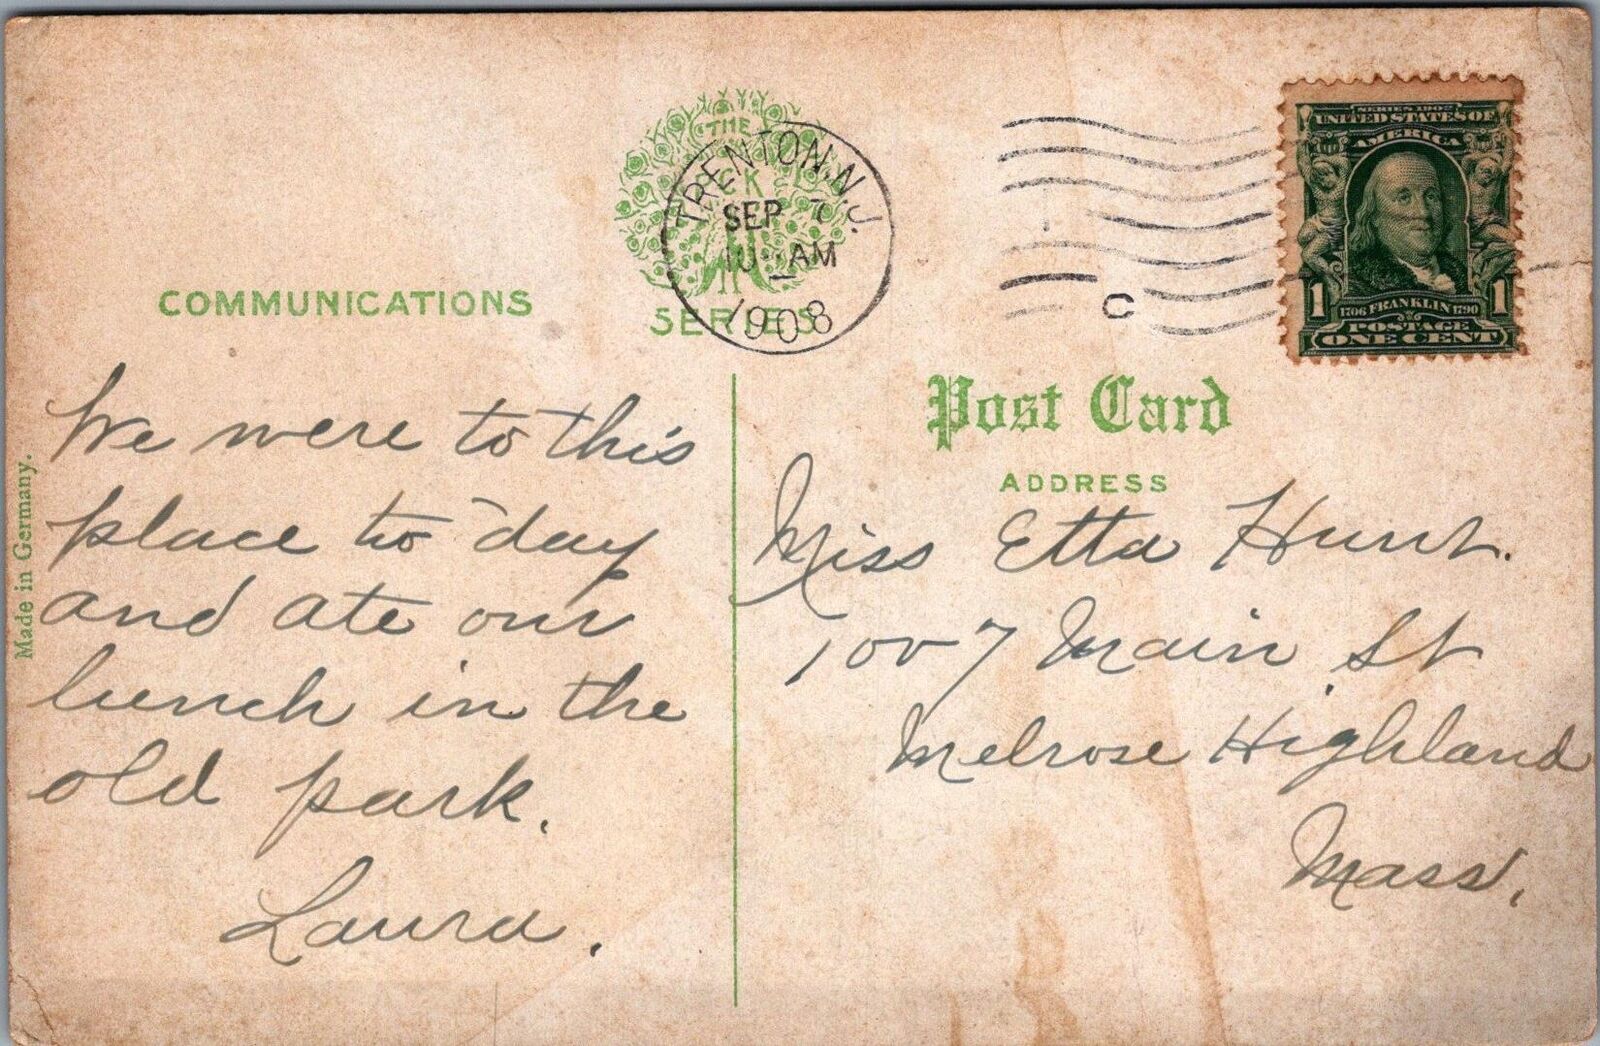 THE
TRENTON, N.J.
SEP 7
10 AM
1908
SERIES
C
SERIES 1902
UNITED STATES OF
AMERICA
1 1706 FRANKLIN 1790 1
POSTAGE
ONE CENT
COMMUNICATIONS
We were to this
place to-day
and ate our
lunch in the
old park.
Laura.
Made in Germany.
Post Card
ADDRESS
Miss Etta Hunt.
1007 Main St
Melrose Highland
Mass.